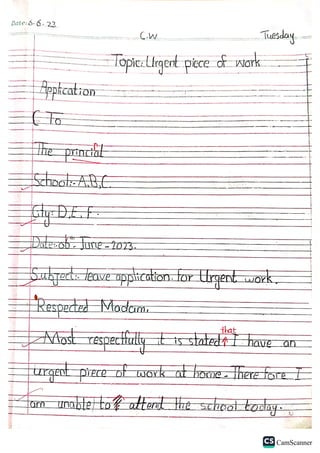 Date: 6-6-22
C.W
Tuesday.
Topic: Urgent piece of work
Application
C To
The principal
School:- A.B.C.
City:- D.E.F.
Date:-06th June-2023.
Subject:- leave application for Urgent work.
Respected Madam,
that
Most respectfully it is stated ↑ I have an
urgent piece of work at home. There fore I
am unable to attend the school today.
CS CamScanner